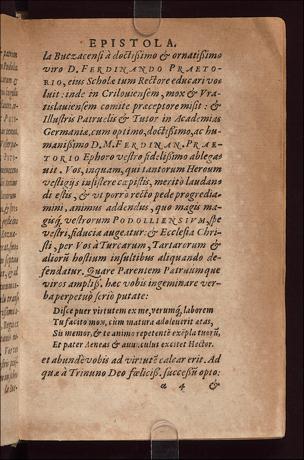 EPISTOLA.
la Buczacensi à doctißimo & ornatißimo
viro D. FERDINANDO PRAETO-
RIO, eius Scholæ tum Rectore educari vo-
luit: inde in Crilouiensem, mox & Vra-
tislauiensem comite præceptore misit: &
Illustris Patruelis & Tutor in Academias
Germaniæ, cum optimo, doctißimo, ac hu-
manißimo D. M. FERDINAN. PRAE-
TORIO Ephoro vestro fidelißimo ablegа-
uit. Vos, inquam, qui tantorum Heroum
vestigijs insistere cæpistis, meritò laudano
di estis, & vt porrò recto pede progredia-
mini, animus addendus, quo magis ma-
guq́; vestrorum PODOLLIENSIVM, spe
vestri, fiducia augeatur: & Ecclesia Chri-
sti, per Vos à Turcarum, Tartarorum &
aliorũ hostium insultibus aliquando de-
fendatur. Quare Parentem Patruumque
viros ampliß. hæc vobis ingeminare ver-
ba perpetuò seriò putate:
Disce puer virtutem ex me, verumq́; laborem
Tu facito mox, cum matura adoleuerit ætas,
Sis memor, & te animo repetentē exẽpla tuorũ,
Et pater Aeneas & auunculus excitet Hector.
et abundè vobis ad virtutẽ calcar erit. Ad
quæ à Trinuno Deo fœliciß. successũ opto:
a 4 &